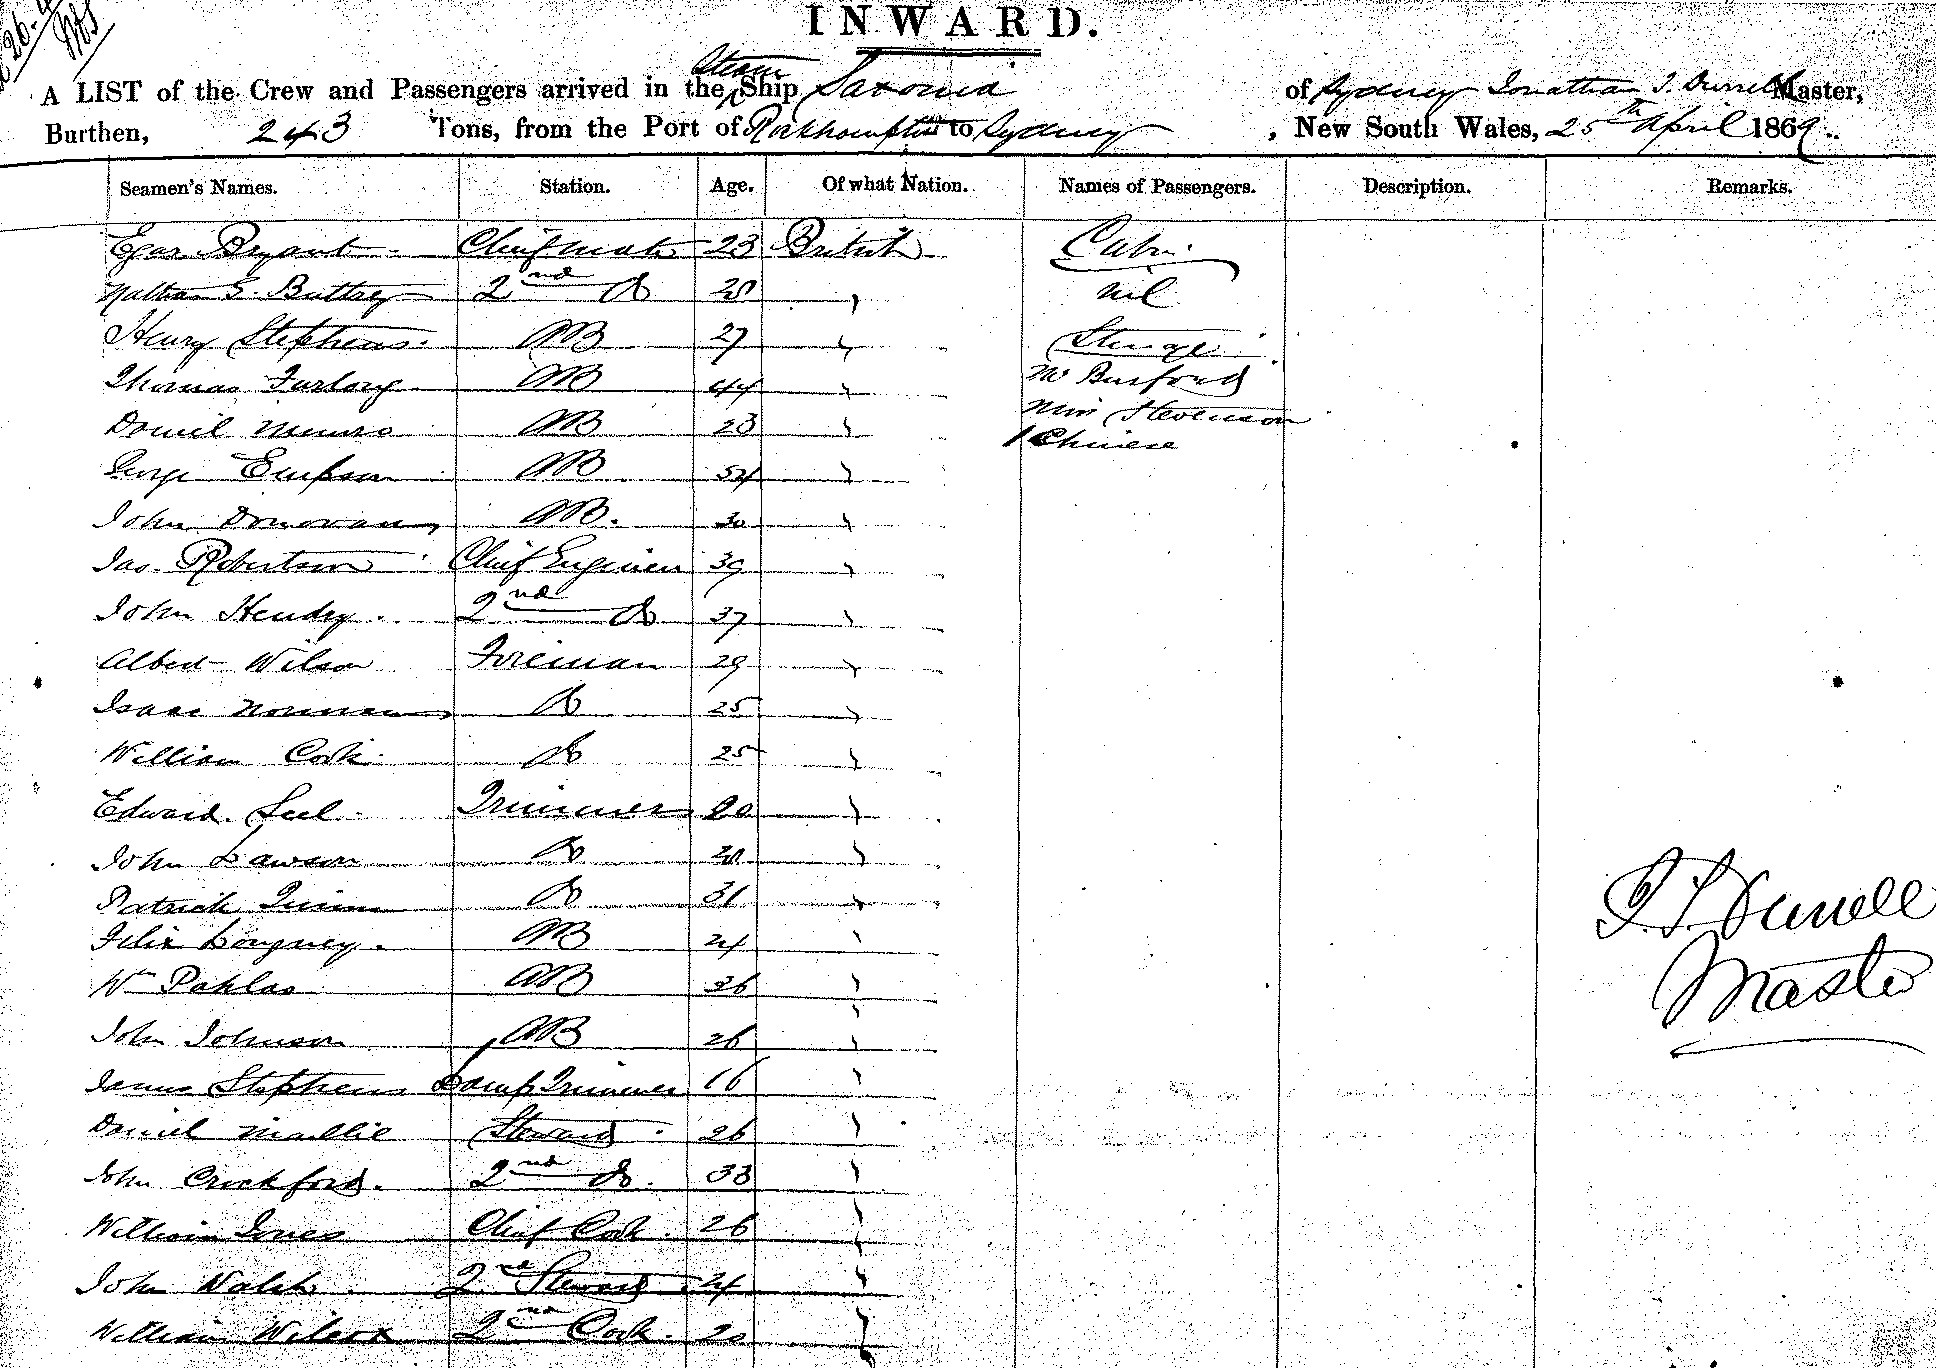 INWARD.
A LIST of the Crew and Passengers arrived in the Steam Ship Saxonia of Sydney Jonathan S. Durrell Master,
Burthen, 243 Tons, from the Port of Rockhampton to Sydney, New South Wales, 25th April 1869.
Seamen's Names. Station. Age. Of what Nation. Names of Passengers. Description. Remarks.
Bryant Chief Mate 23 British Cabin
Nathan G. Buttrey 2nd Do nil
Henry Stephens AB 27 " Steerage
Thomas Furlong AB 44 " Mr Busford
Daniel Munro AB 23 " Miss Stevenson
1 Chinese
George Empson AB 54 "
John Donovan AB. 30 "
Jas. Robertson Chief Engineer 39 "
John Hendry. 2nd Do 37 "
Albert Wilson Fireman 29 "
Isaac Norman Do 25 "
William Cook Do 25 "
Edward Seel Trimmer 20 "
John Lawson Do "
Patrick Quinn Do 31 "
Felix AB 24 "
Wm Pahlas AB 36 "
John Johnson AB 26 "
James Stephens Lamp Trimmer 16 "
Daniel Maillie Steward 26 "
John Crockford. 2nd Do. 33 "
William Jones Chief Cook 26 "
John Walsh 2nd Steward 24 "
William Wilcox 2nd Cook 20 "
J. S. Durrell
Master